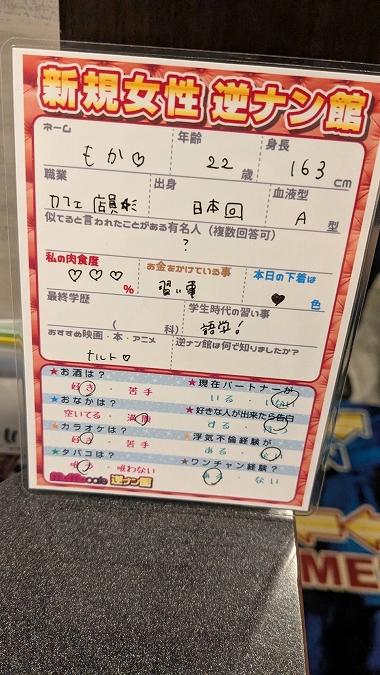 新規女性 逆ナン館
ネーム 年齢 身長
もか♡ 22歳 163cm
職業 出身 血液型
カフェ店員 日本 A型
似てると言われたことがある有名人（複数回答可）
?
私の肉食度 お金をかけている事 本日の下着は
♡♡♡% 習い事 ♥色
最終学歴 学生時代の習い事
( 科) 語学!
おすすめ映画・本・アニメ 逆ナン館は何で知りましたか？
ナルト♡
★お酒は？ ★現在パートナーが
好き・苦手 いる・いない
★おなかは？ ★好きな人が出来たら告白
空いてる・満腹 する・
★カラオケは？ ★浮気不倫経験が
好き・苦手 ある・ない
★タバコは？ ★ワンチャン経験？
吸う・吸わない ある・ない
逆ナン館
ME